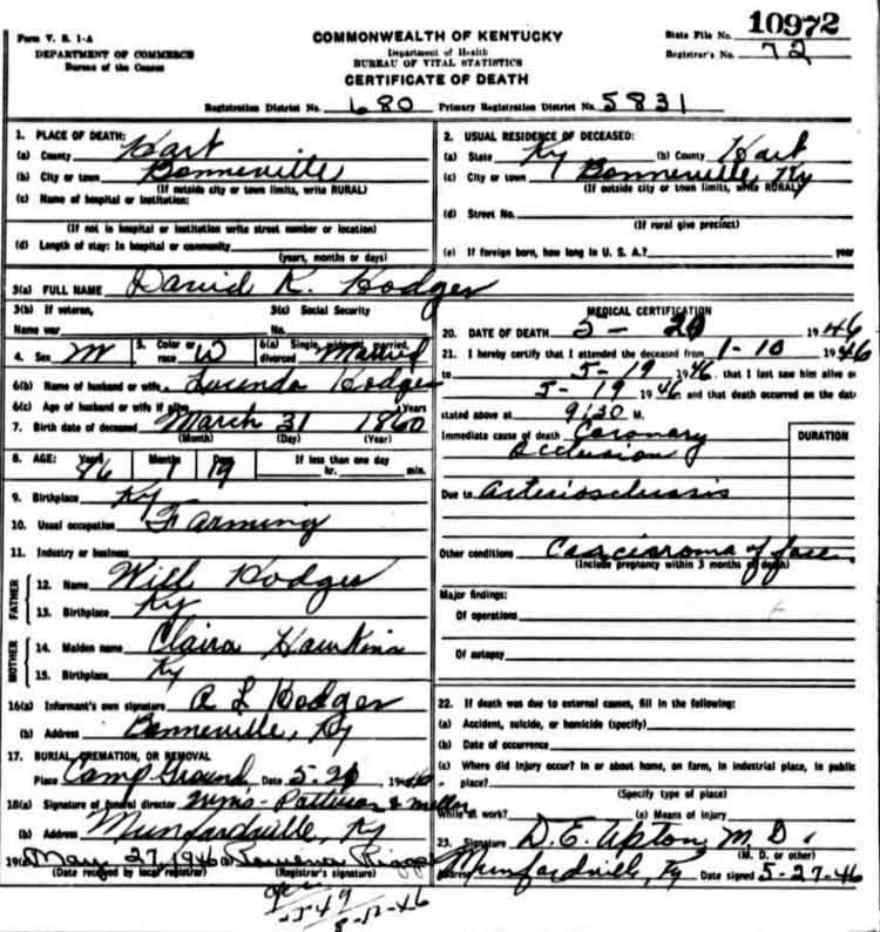 Form V. S. 1-A
DEPARTMENT OF COMMERCE
Bureau of the Census
COMMONWEALTH OF KENTUCKY
Department of Health
BUREAU OF VITAL STATISTICS
CERTIFICATE OF DEATH
State File No. 10972
Registrar's No. 72
Registration District No. 680 Primary Registration District No. 5831
1. PLACE OF DEATH:
(a) County Hart
(b) City or town Bonneville
(If outside city or town limits, write RURAL)
(c) Name of hospital or institution:
(If not in hospital or institution write street number or location)
(d) Length of stay: In hospital or community
(years, months or days)
2. USUAL RESIDENCE OF DECEASED:
(a) State Ky (b) County Hart
(c) City or town Bonneville, Ky
(If outside city or town limits, write RURAL)
(d) Street No.
(If rural give precinct)
(e) If foreign born, how long in U. S. A.? year
3(a) FULL NAME David R. Hodges
3(b) If veteran, 3(c) Social Security
Name war No.
4. Sex M 5. Color or race W 6(a) Single, widowed, married, divorced Married
6(b) Name of husband or wife Lucinda Hodges
6(c) Age of husband or wife if alive Years
7. Birth date of deceased March 31 1860
(Month) (Day) (Year)
8. AGE: Years Months 1 Days 19 If less than one day
hr. min.
9. Birthplace Ky
10. Usual occupation Farming
11. Industry or business
FATHER
12. Name Will Hodges
13. Birthplace Ky
MOTHER
14. Maiden name Claira Hawkins
15. Birthplace Ky
16(a) Informant's own signature R L Hodges
(b) Address Bonneville, Ky
17. BURIAL, CREMATION, OR REMOVAL
Place Camp Ground Date 5-21 1946
18(a) Signature of funeral director Patterson &
(b) Address Munfordville, Ky
19(a) May 27, 1946
(Date received by local registrar) (Registrar's signature)
MEDICAL CERTIFICATION
20. DATE OF DEATH 5- 20 1946
21. I hereby certify that I attended the deceased from 1-10 1946
to 5-19 1946, that I last saw him alive on
5-19 1946 and that death occurred on the date
stated above at 9:30 M.
Immediate cause of death Coronary
Occlusion
DURATION
Due to Arteriosclerosis
Other conditions Carcinoma of face
(Include pregnancy within 3 months of death)
Major findings:
Of operations
Of autopsy
22. If death was due to external causes, fill in the following:
(a) Accident, suicide, or homicide (specify)
(b) Date of occurrence
(c) Where did injury occur? In or about home, on farm, in industrial place, in public
place?
(Specify type of place)
While at work? (e) Means of injury
23. Signature D. E. Upton M. D.
(M. D. or other)
Address Munfordville, Ky Date signed 5-27-46
8-12-46